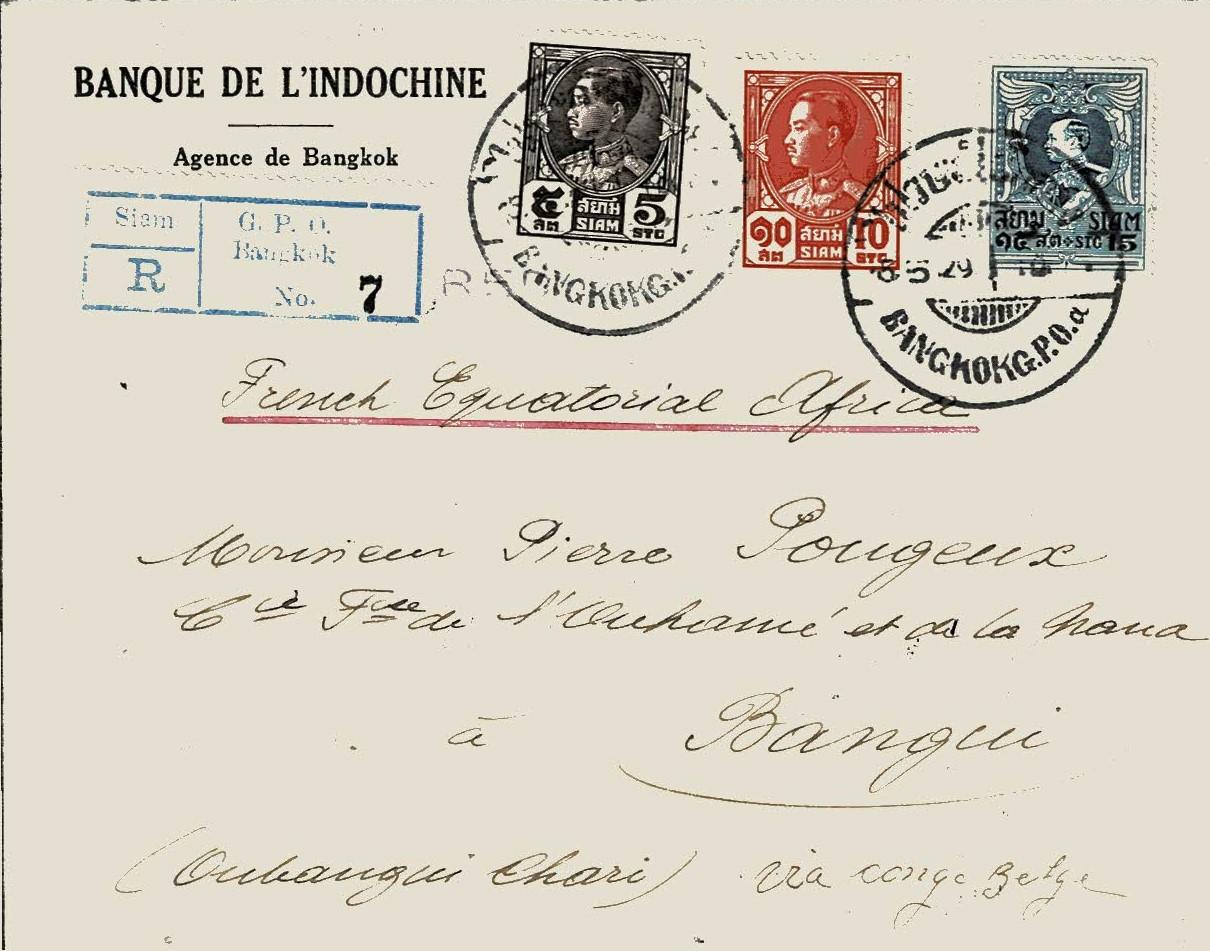 BANQUE DE L'INDOCHINE
Agence de Bangkok
๕ สต สยาม SIAM 5 STG
๑๐ สต สยาม SIAM 10 STG
สยาม SIAM
๑๕ สต STG 15
BANGKOK G.
8 5 29
BANGKOK G.P.O. a
Siam
R
G. P. O.
Bangkok
No. 7
French Equatorial Africa
Monsieur Pierre Pougeux
Cie Fse de l'Ouhamé et de la Nana
à Bangui
(Oubangui Chari) via congo Belge